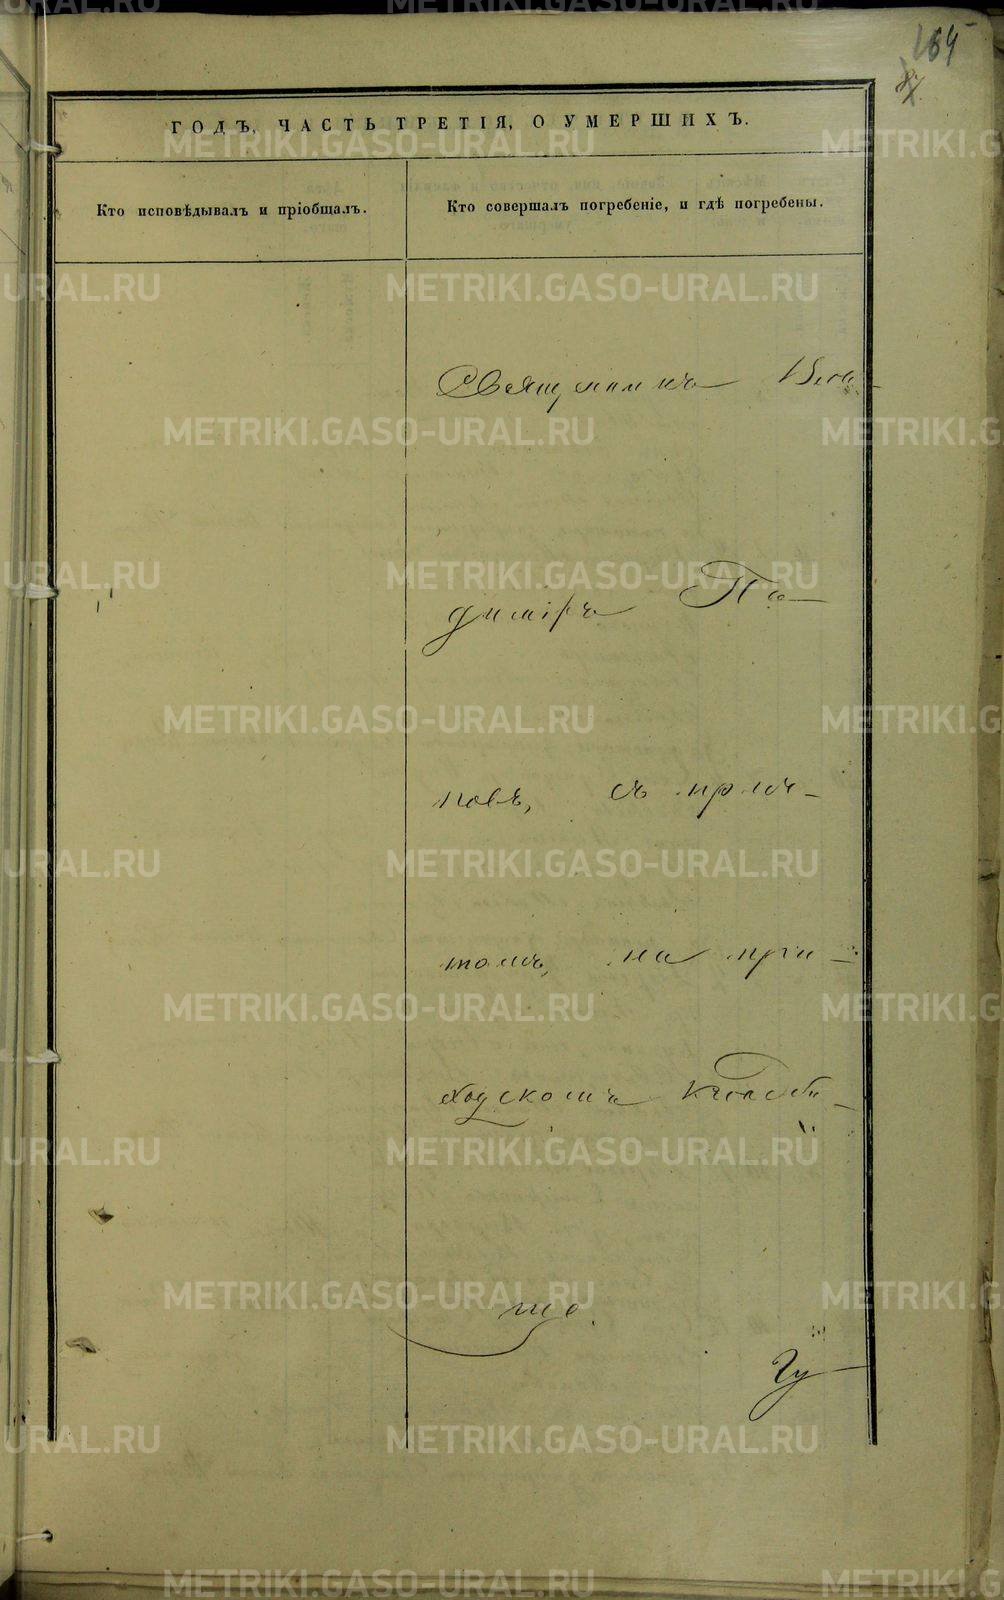 164
87
ГОДЪ, ЧАСТЬ ТРЕТІЯ, О УМЕРШИХЪ.
Кто исповѣдывалъ и пріобщалъ.
Кто совершалъ погребеніе, и гдѣ погребены.
Священникъ Вла-
диміръ По-
повъ, съ прич-
томъ, на при-
ходскомъ кладби-
що.
Чу-
METRIKI.GASO-URAL.RU